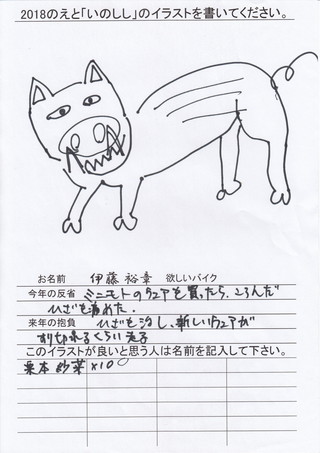 2018のえと「いのしし」のイラストを書いてください。
お名前 伊藤 裕幸 欲しいバイク
今年の反省 ミニモトのウェアを買ったら、ころんだ
ひざを痛めた.
来年の抱負 ひざを治し、新しいウェアが
すり切れるくらい走る
このイラストが良いと思う人は名前を記入して下さい。
栗本 紗菜 x10